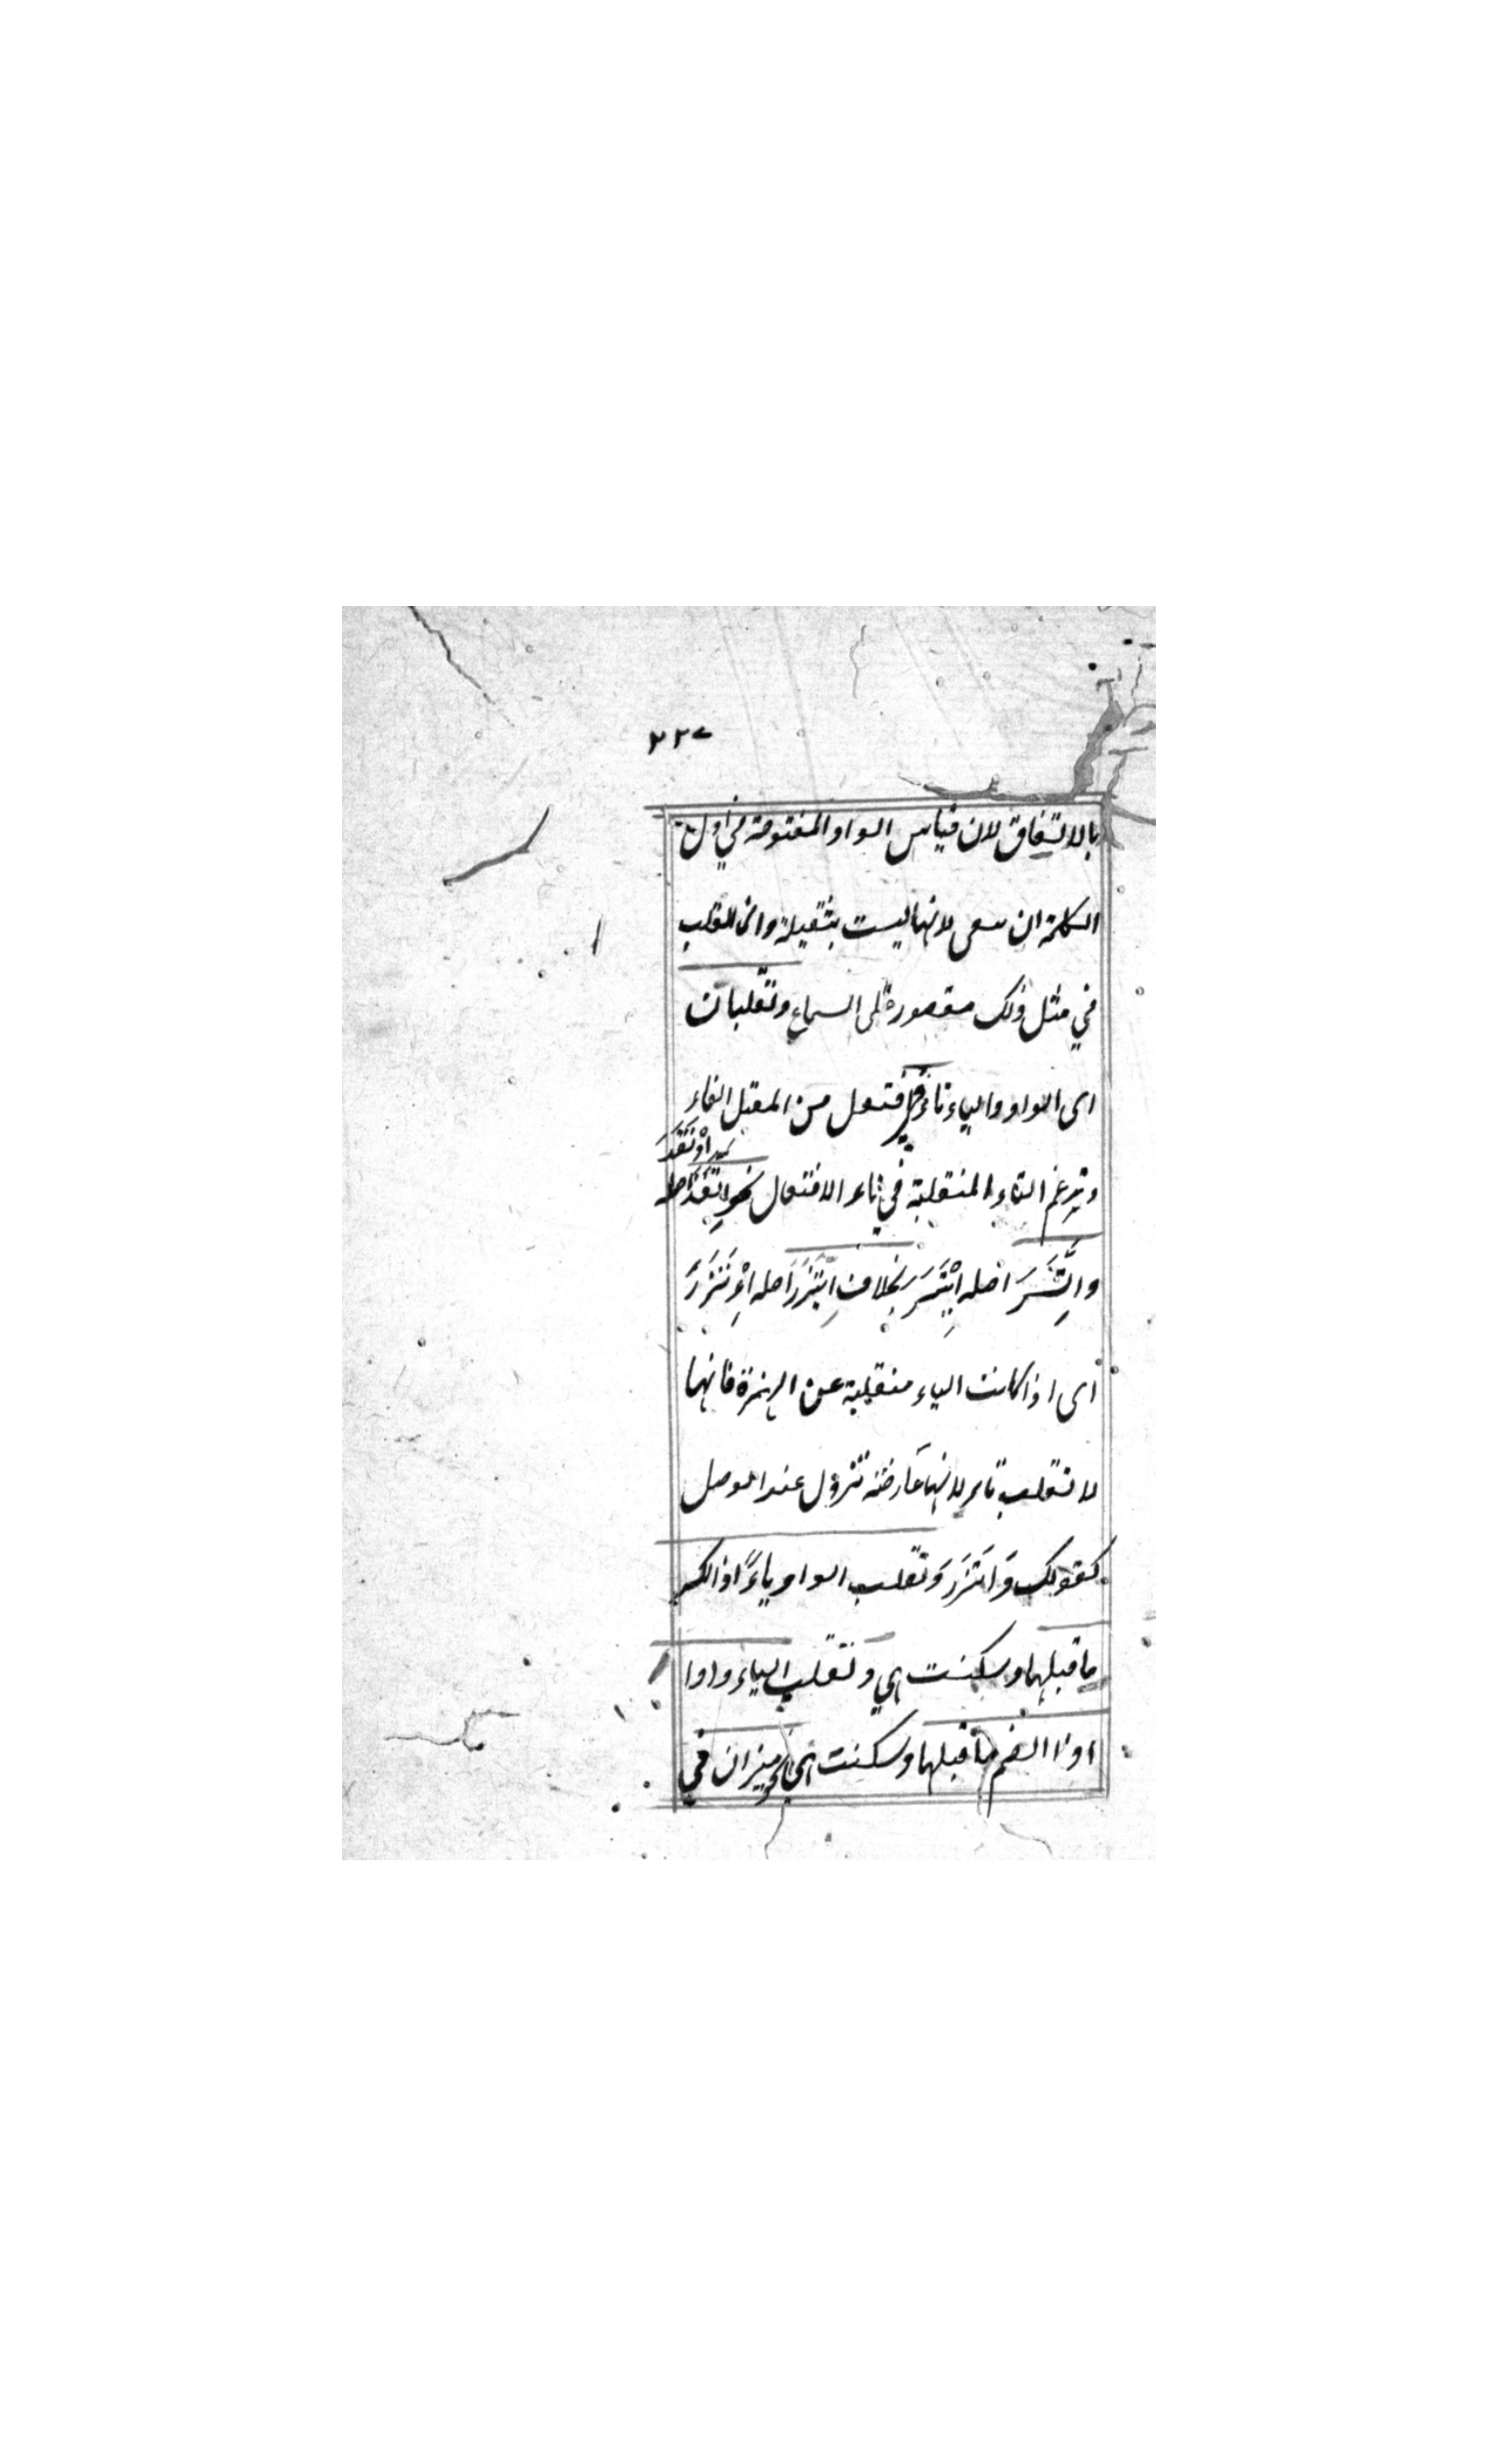 ٢٢٧
بالاتفاق لان قياس الواو المفتوحة في اول
الكلمة ان سعى لانها ليست بثقيلة وانما القلب
في مثل ذلك مقصورة على السماع وتقلبان
اى الواو والياء تاء في افتعل من المعتل الفاء
وتدغم التاء المنقلبة في تاء الافتعال نحو اِتَّقَدَ اصله
اِوْتَقَدَ
واِتَّسَرَ اصله اِيْتَسَرَ بخلاف اِيْتَزَرَ اصله اِءْتَزَرَ
اى اذا كانت الياء منقلبة عن الهمزة فانها
لا تقلب تاء لانها عارضة تزول عند الوصل
كقولك وَاتَزَرَ وَتقلب الواو ياءً اذا انكسر
ما قبلها وسكنت هي وتقلب الياء واوا
اذا انضم ما قبلها وسكنت هي نحو ميزان في